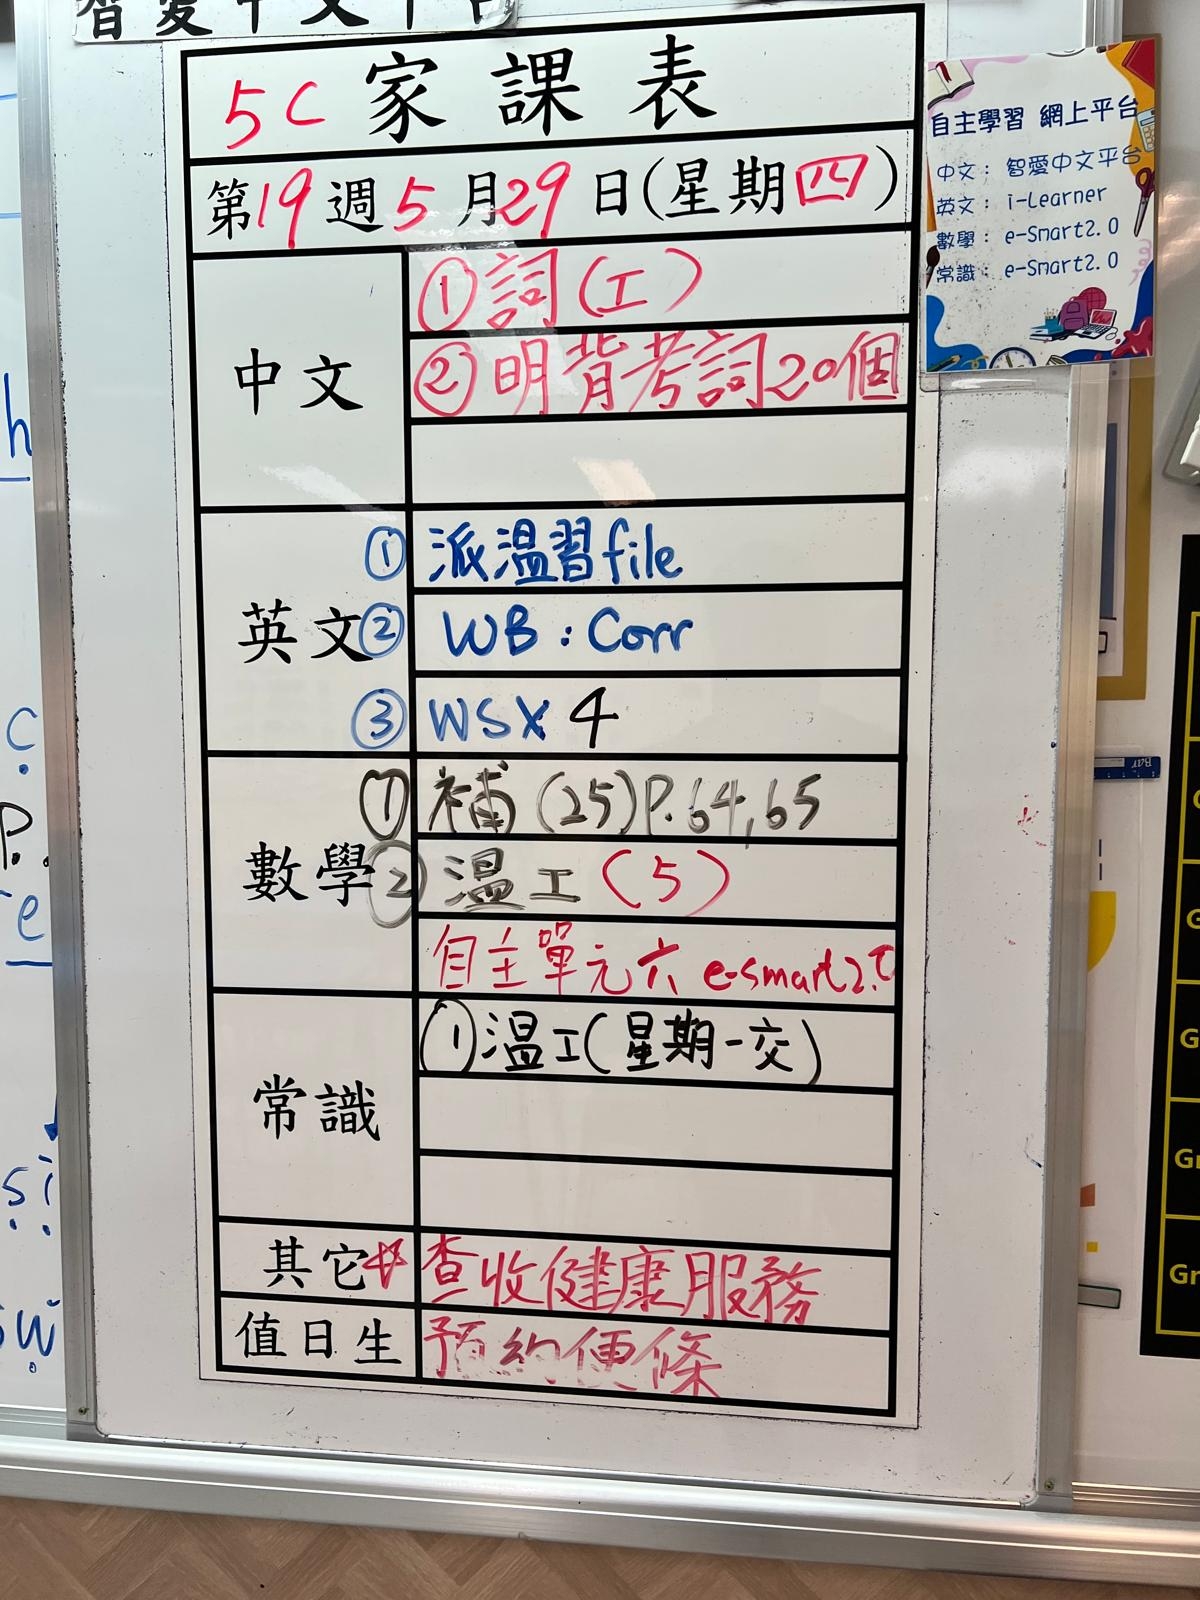 智愛中文平台
5C 家課表
第19週5月29日(星期四)
中文
①詞(工)
②明背考詞20個
英文
①派溫習file
②WB:Corr
③WSX4
數學
①補(25)P.64,65
②溫工(5)
自主單元六 e-smart2.0
常識
①溫工(星期一交)
其它
查收健康服務
值日生
預約便條
自主學習 網上平台
中文: 智愛中文平台
英文: i-Learner
數學: e-Smart2.0
常識: e-Smart2.0
h
c
P.
e
si
w
Bar
G
G
G
Gr
Gr